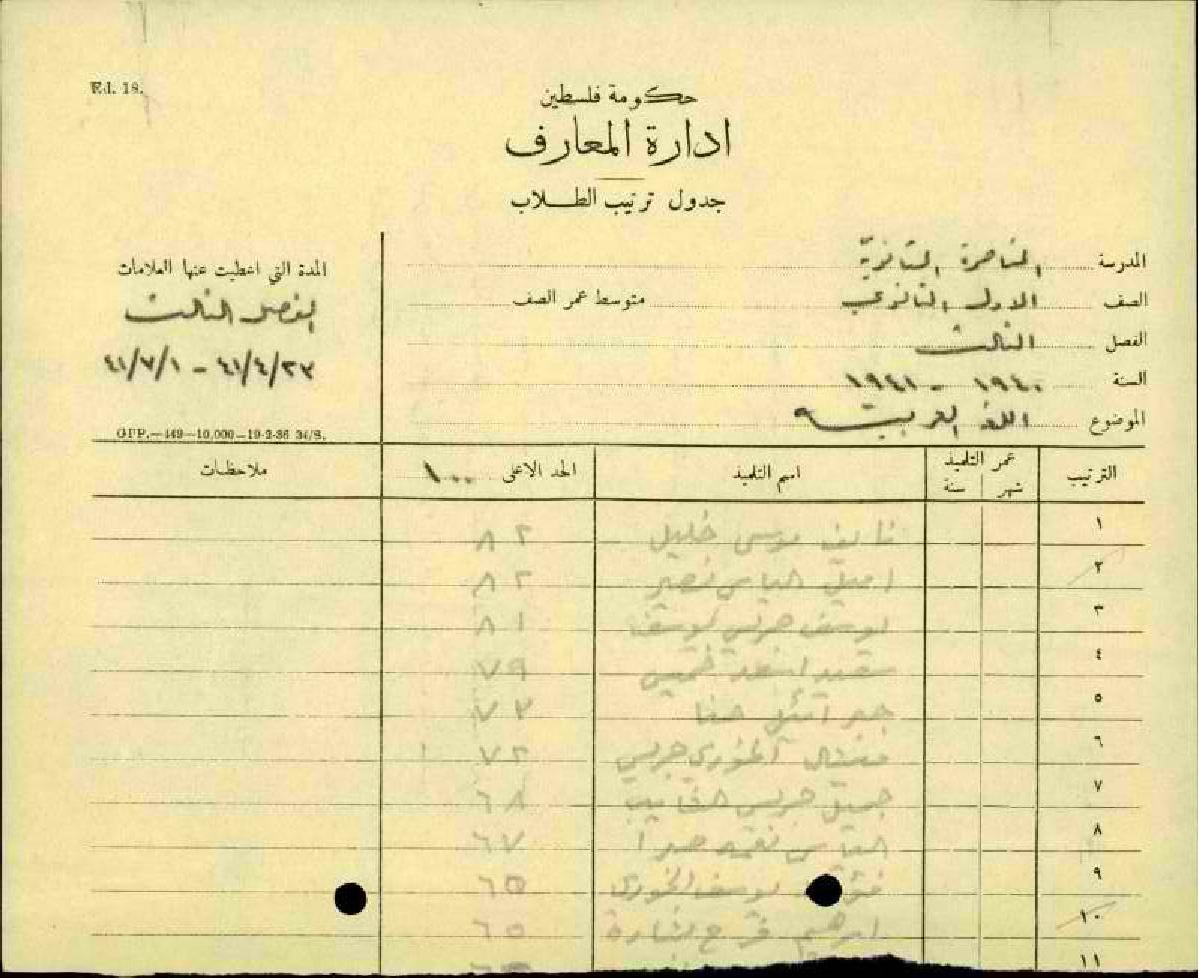 Ed. 18.
حكومة فلسطين
ادارة المعارف
جدول ترتيب الطلاب
المدرسة الناصرة الثانوية
الصف الاول الثانوي متوسط عمر الصف
الفصل الثالث
السنة ١٩٤٠ - ١٩٤١
الموضوع اللغة العربية
المدة التي اعطيت عنها العلامات
الفصل الثالث
٤١/٤/٢٣ - ٤١/٧/١
GPP.—449—10,000—19-2-36 34/S.
الترتيب عمر التلميذ شهر سنة اسم التلميذ الحد الاعلى ١٠٠ ملاحظات
١ نايف موسى خليل ٨٢
٢ اميل الياس نصير ٨٢
٣ يوسف جريس يوسف ٨١
٤ سعيد اسعد خميس ٧٩
٥ جبرائيل حنا ٧٣
٦ الخوري جريس ٧٢
٧ جميل جريس ٦٨
٨ الياس نعمه ٦٧
٩ يوسف الخوري ٦٥
١٠ ابرهيم فرح بشارة ٦٥
١١